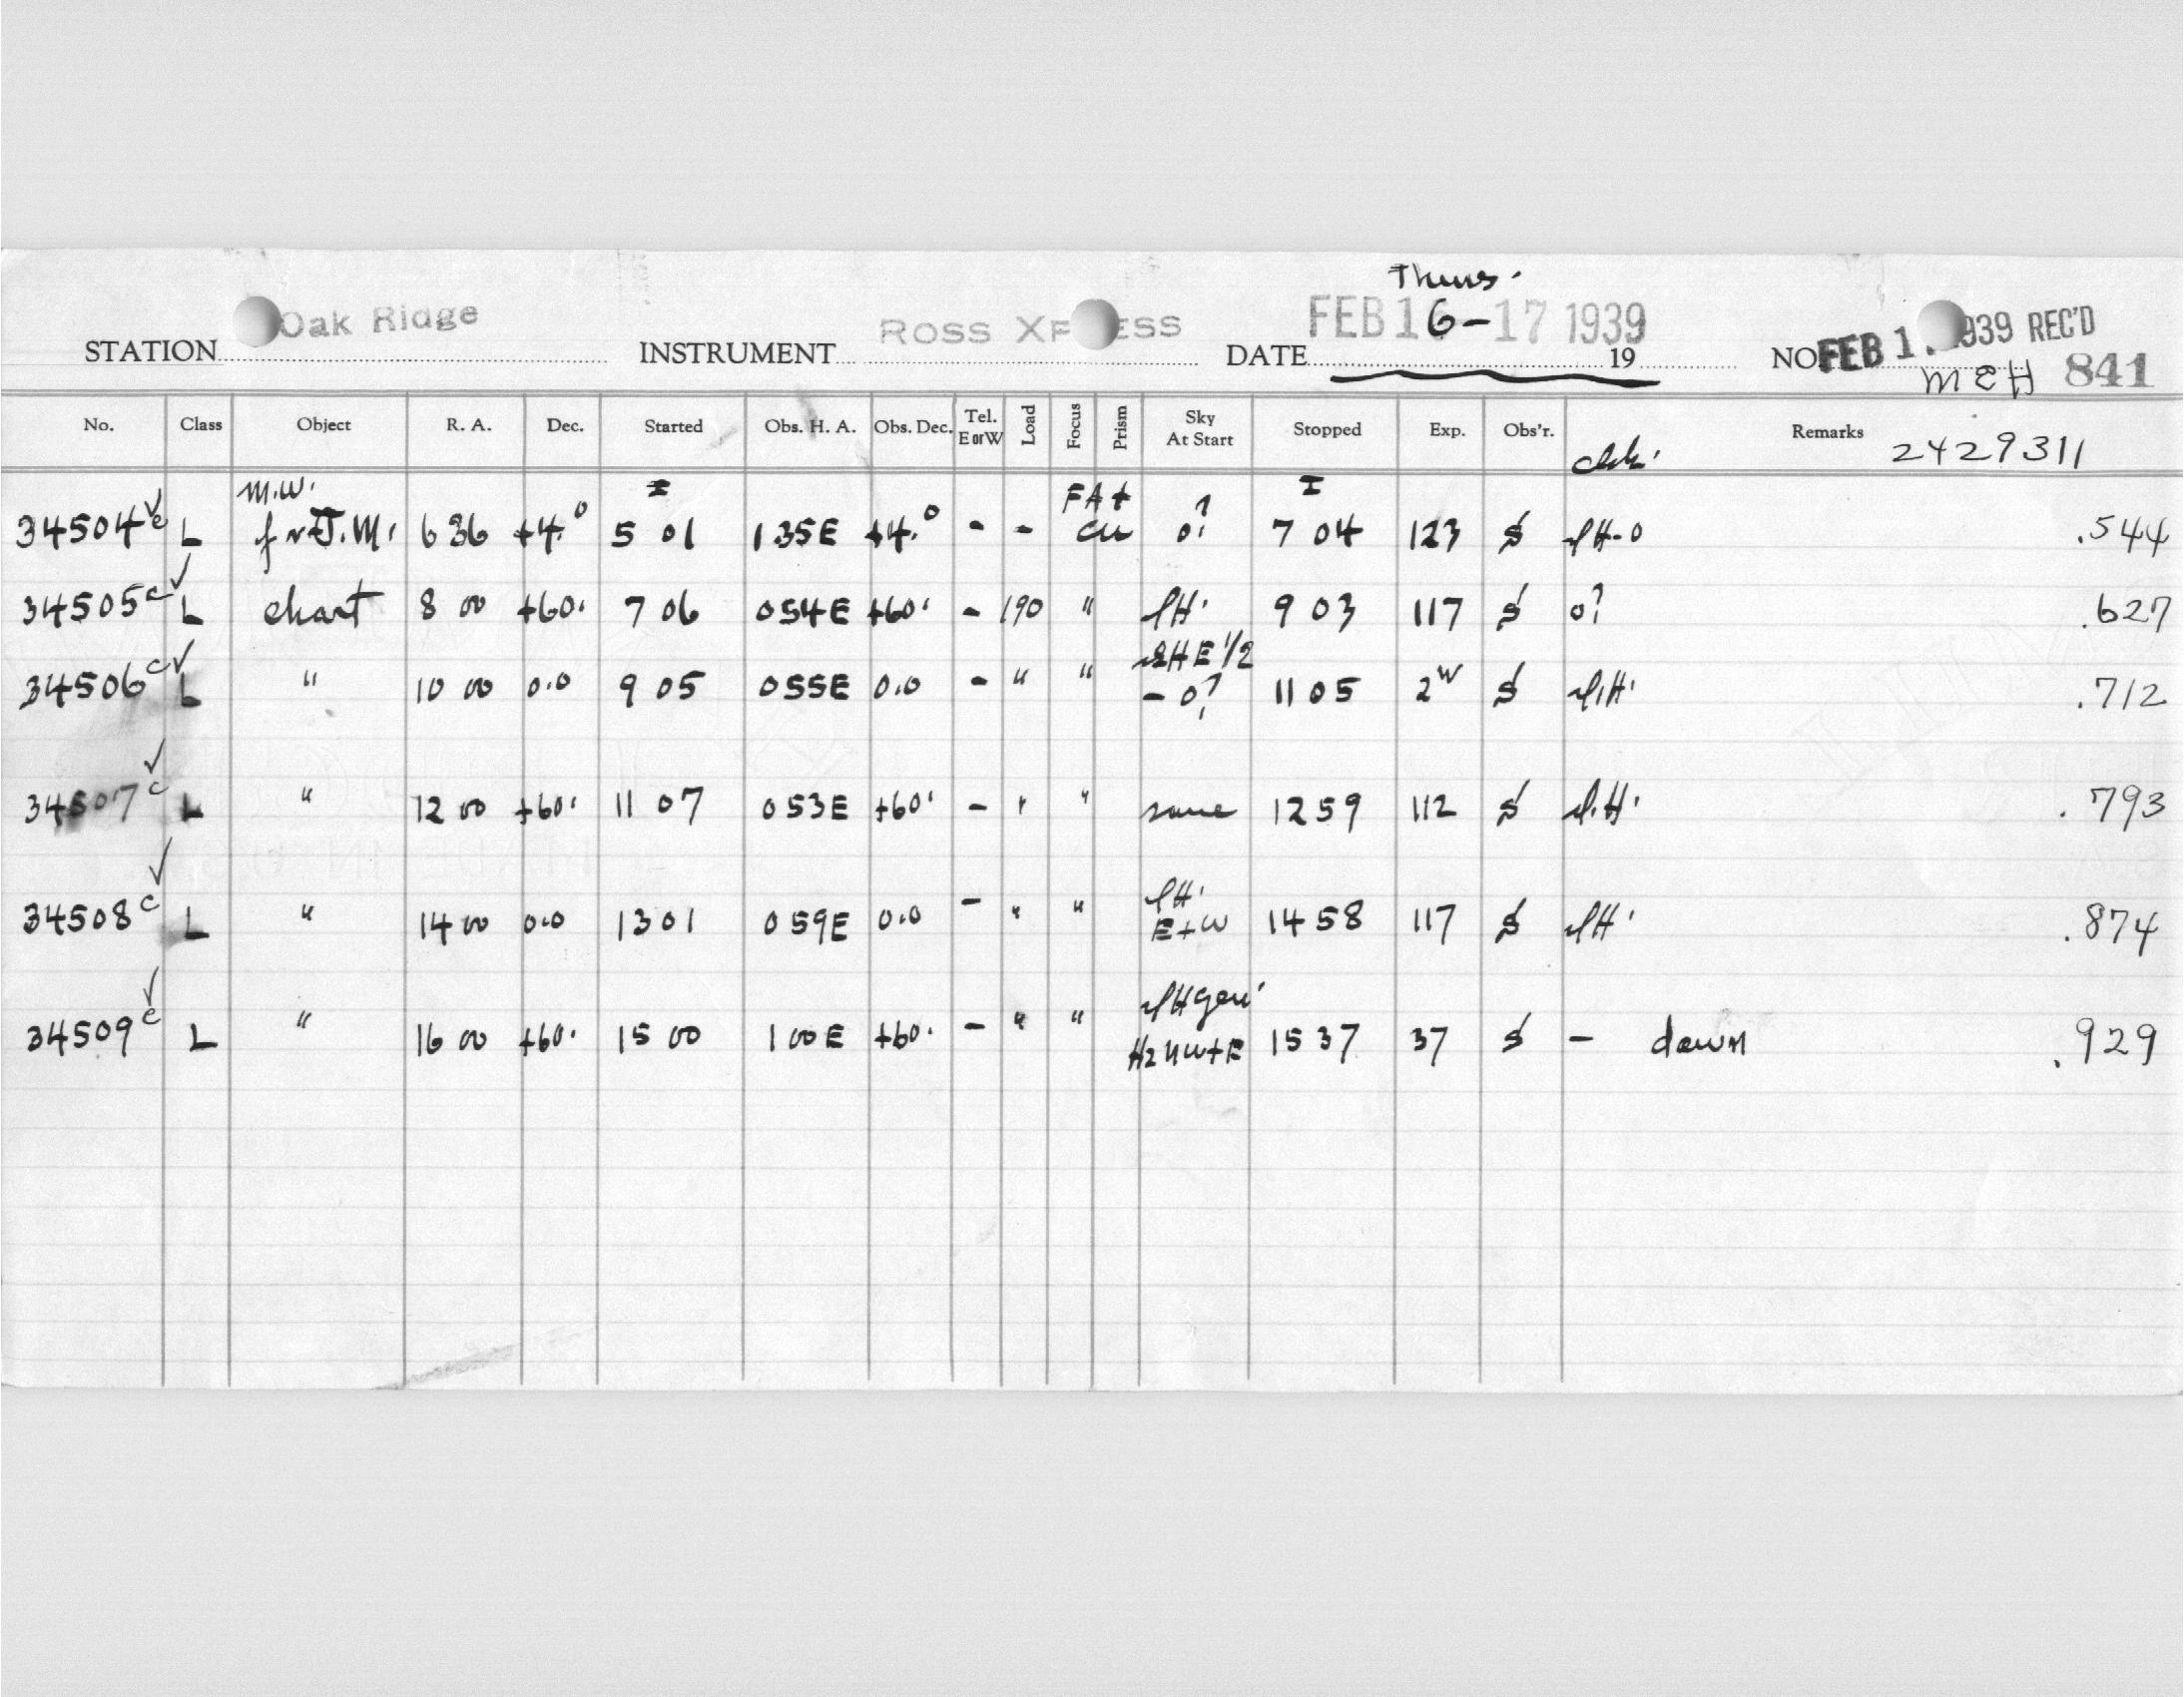 Thurs.
STATION Oak Ridge INSTRUMENT ROSS XP ESS DATE FEB 16-17 1939 19 NO. FEB 1 939 REC'D
MEH 841
No. Class Object R. A. Dec. Started Obs. H. A. Obs. Dec. Tel. E or W Load Focus Prism Sky At Start Stopped Exp. Obs'r. Remarks 2429311
M.W. I FA+ I
34504 c L J.M. 6 36 +4.0 5 01 1 35E +4.0 - - cu 0? 7 04 123 S .544
34505 c L chart 8 00 +60. 7 06 0 54E +60. - 190 " 9 03 117 S 0? .627
HE 1/2
34506 c L " 10 00 0.0 9 05 0 55E 0.0 - " " - 0? 11 05 2 S .712
34507 c L " 12 00 +60. 11 07 0 53E +60. - " " same 12 59 112 S .793
34508 c L " 14 00 0.0 13 01 0 59E 0.0 - " " E+W 14 58 117 S .874
34509 c L " 16 00 +60. 15 00 1 00E +60. - " " 15 37 37 S - dawn .929